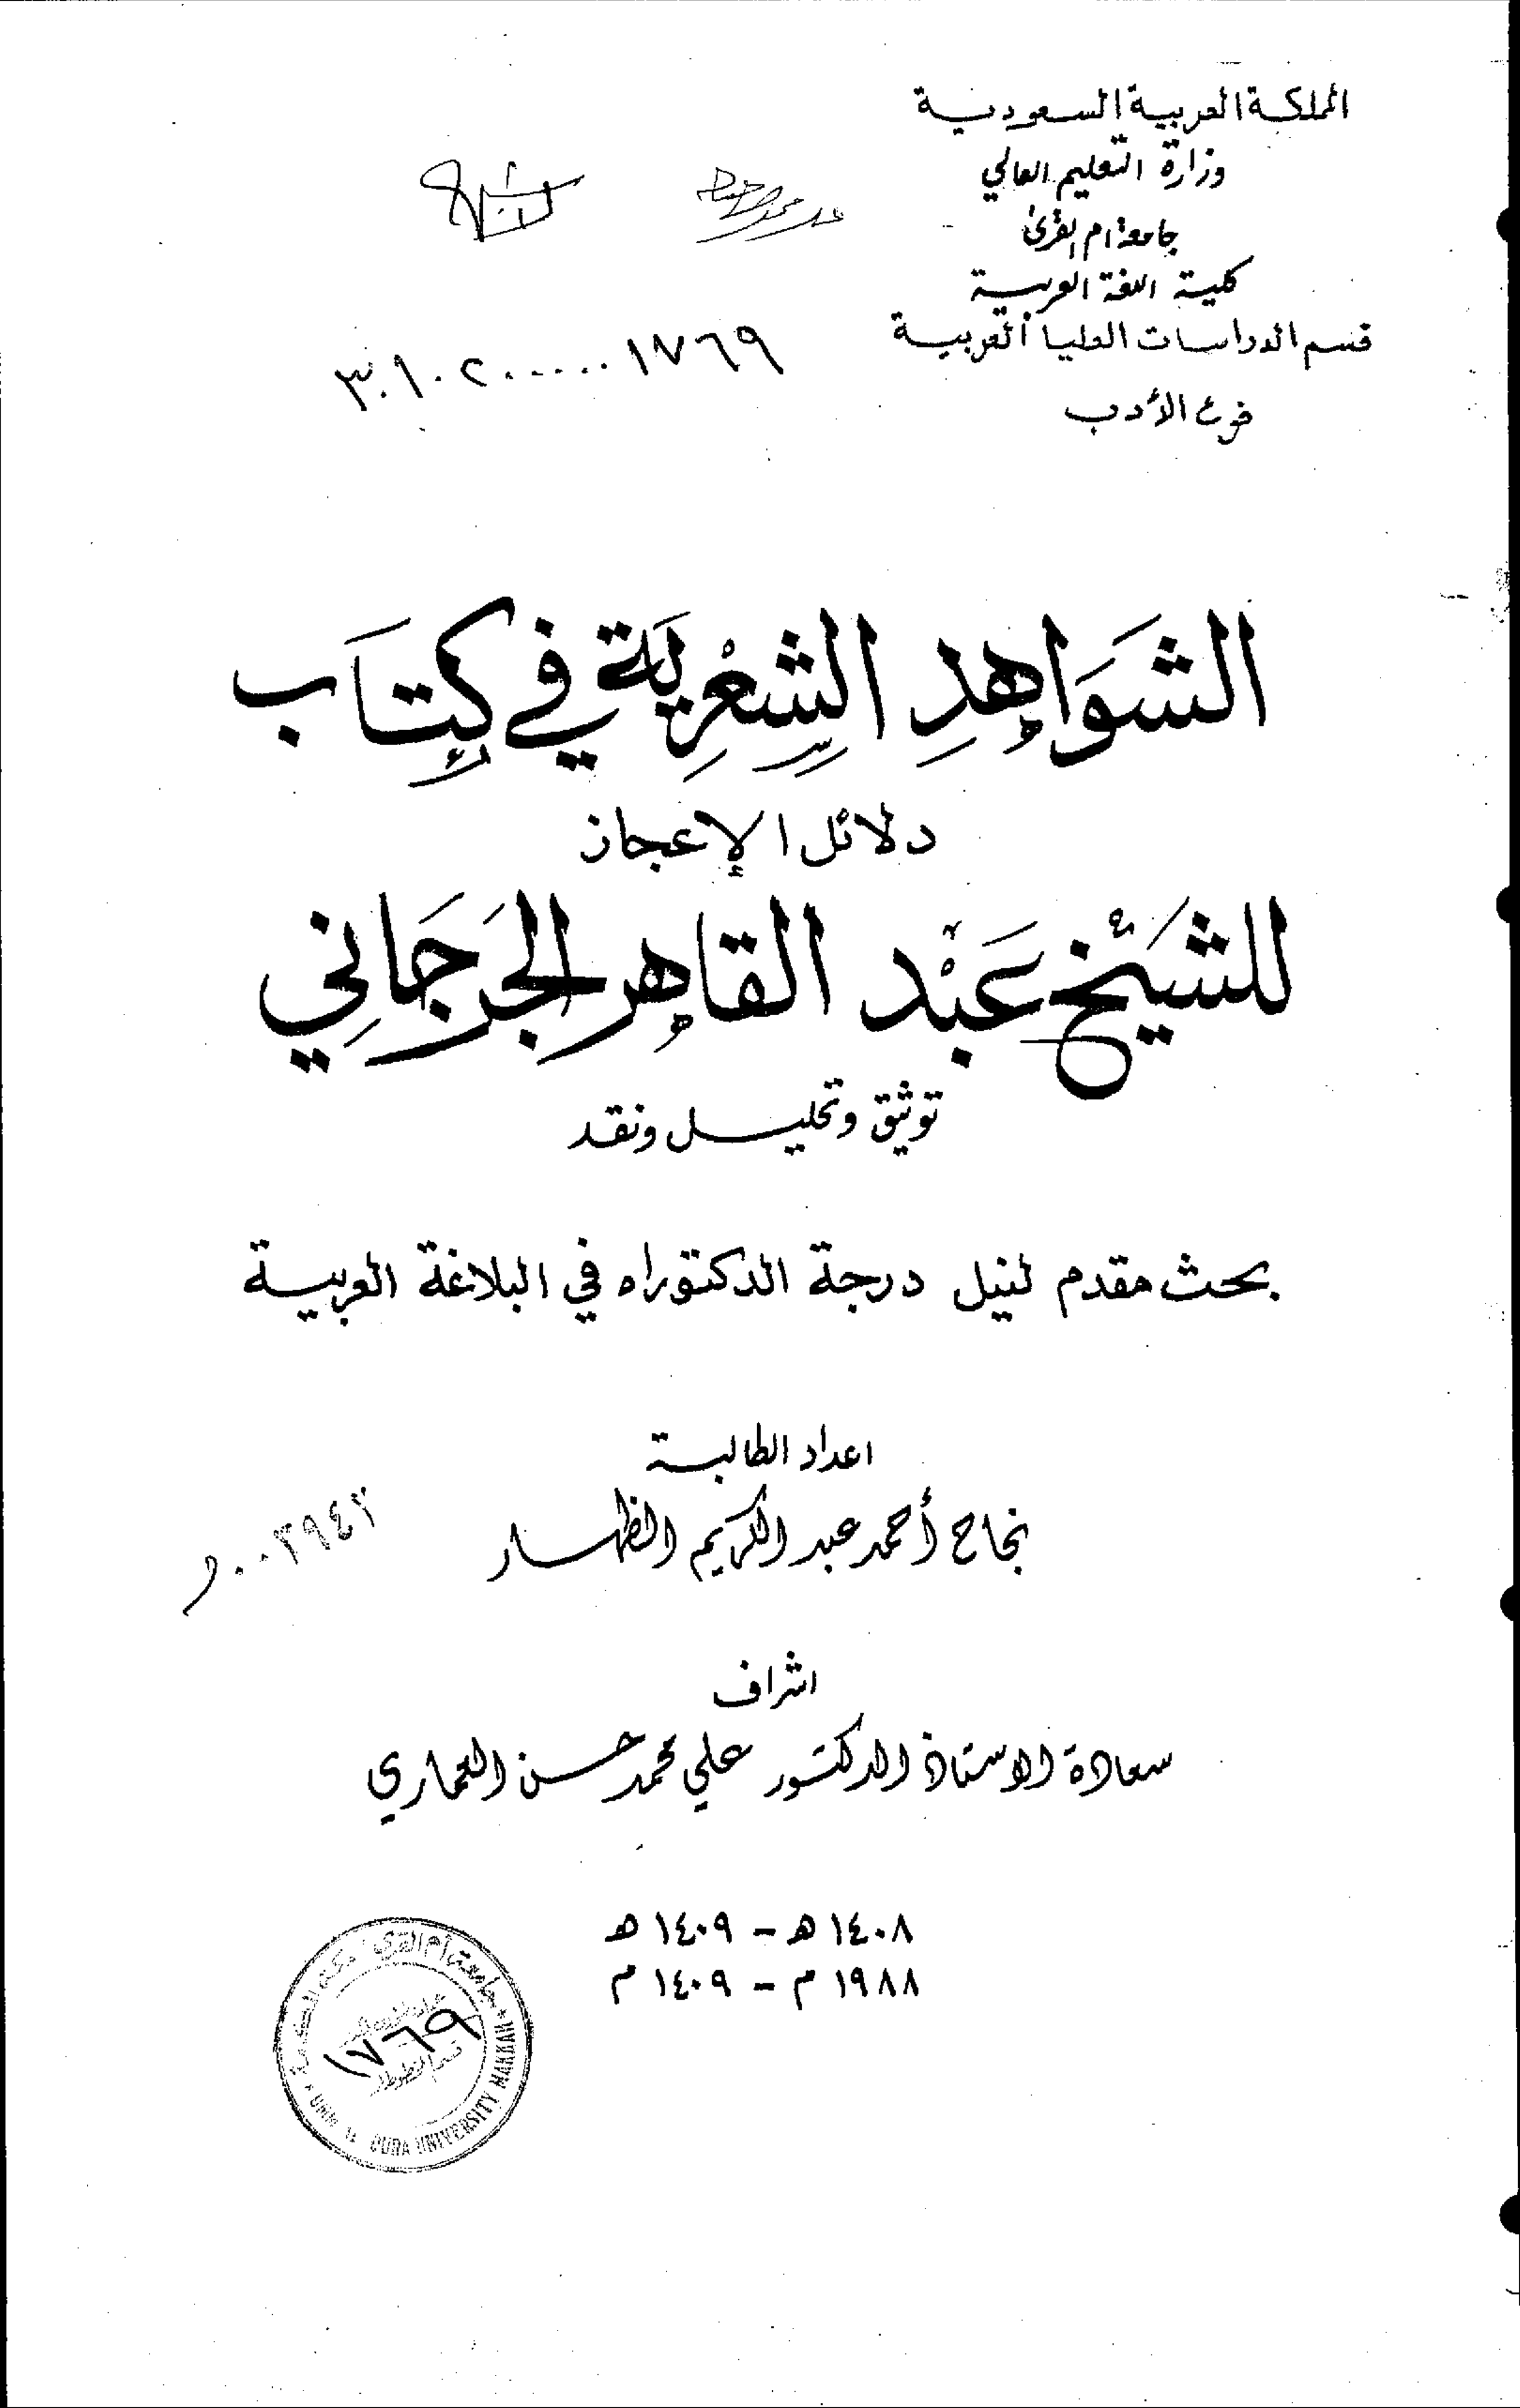 المملكة العربية السعودية
وزارة التعليم العالي
جامعة ام القرى
كلية اللغة العربية
قسم الدراسات العليا العربية
فرع الأدب
٣٠١٠٢٠٠٠٠٠٠١٧٦٩
الشَوَاهِدِ الشِعْرِيَة في كِتَاب
دلائل الإعجاز
للشَيْخ عَبْد القاهِر الجَرجَانِي
توثيق وتحليل ونقد
بحث مقدم لنيل درجة الدكتوراه في البلاغة العربية
اعداد الطالبة
نجاح أحمد عبد الكريم الظهار
اشراف
سعادة الاستاذ الدكتور علي محمد حسن العماري
١٤٠٨ هـ - ١٤٠٩ هـ
١٩٨٨ م - ١٤٠٩ م
جامعة أم القرى
١٧٦٩
QURA UNIVERSITY MAKKAH